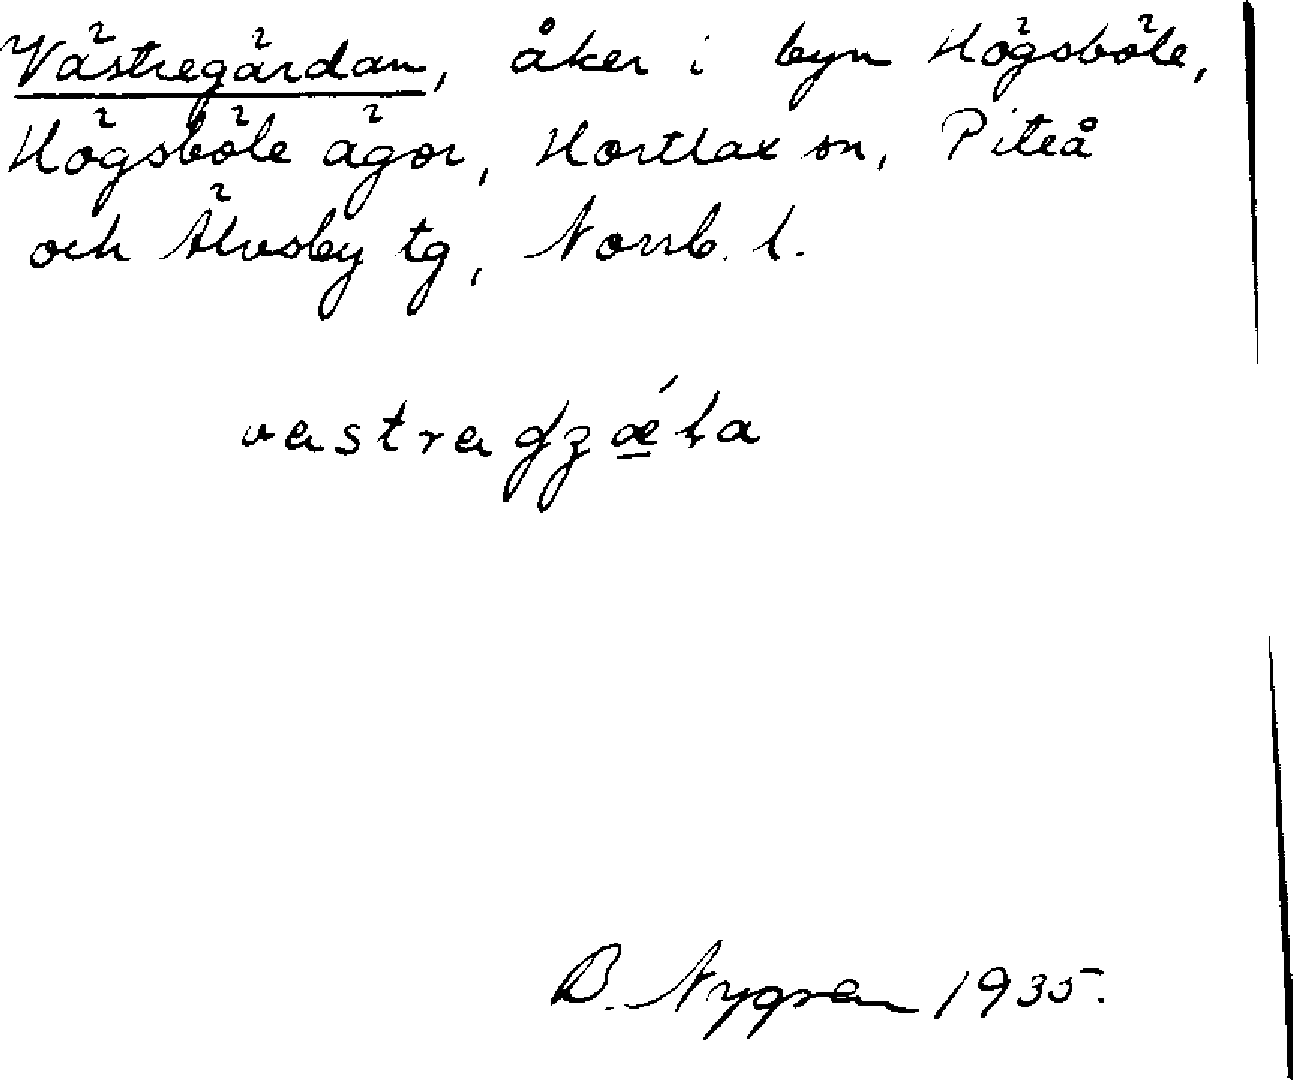 Västregärdan, åker i byn Högsböle,
Högsböle ägor, Hortlax sn, Piteå
och Älvsby tg, Norrb. l.
B. Nygren 1935.